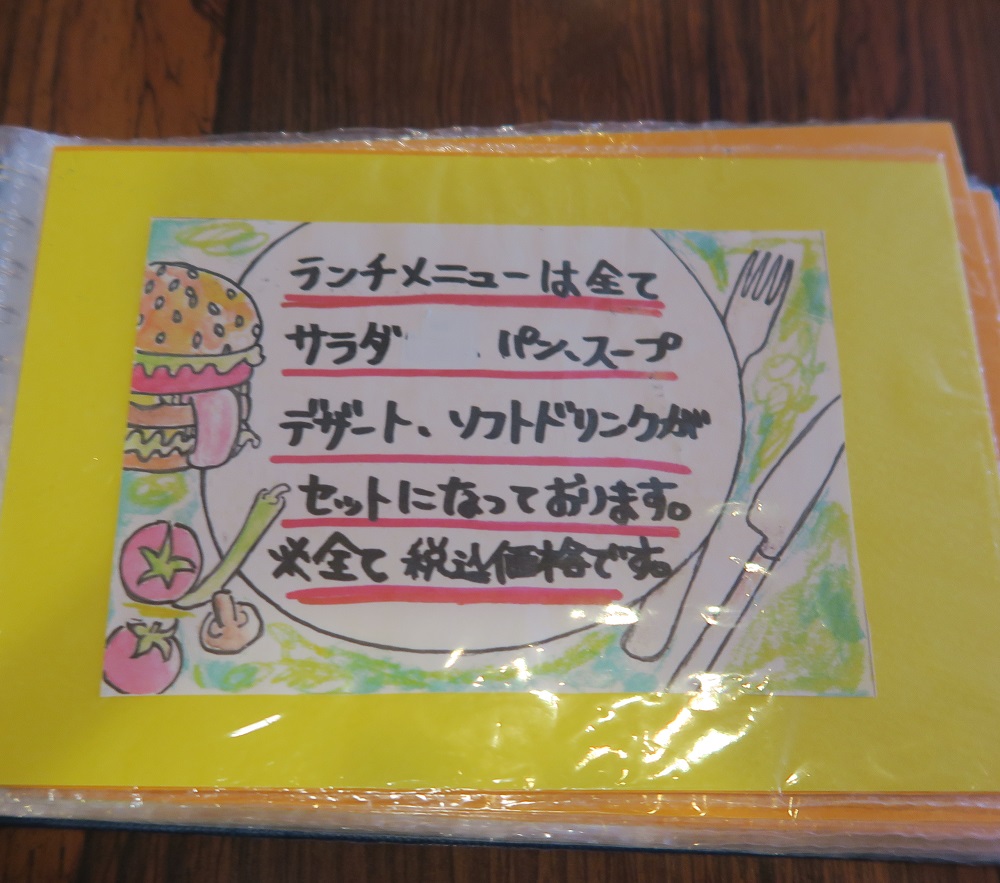 ランチメニューは全て
サラダ、パン、スープ
デザート、ソフトドリンクが
セットになっております。
※全て税込価格です。